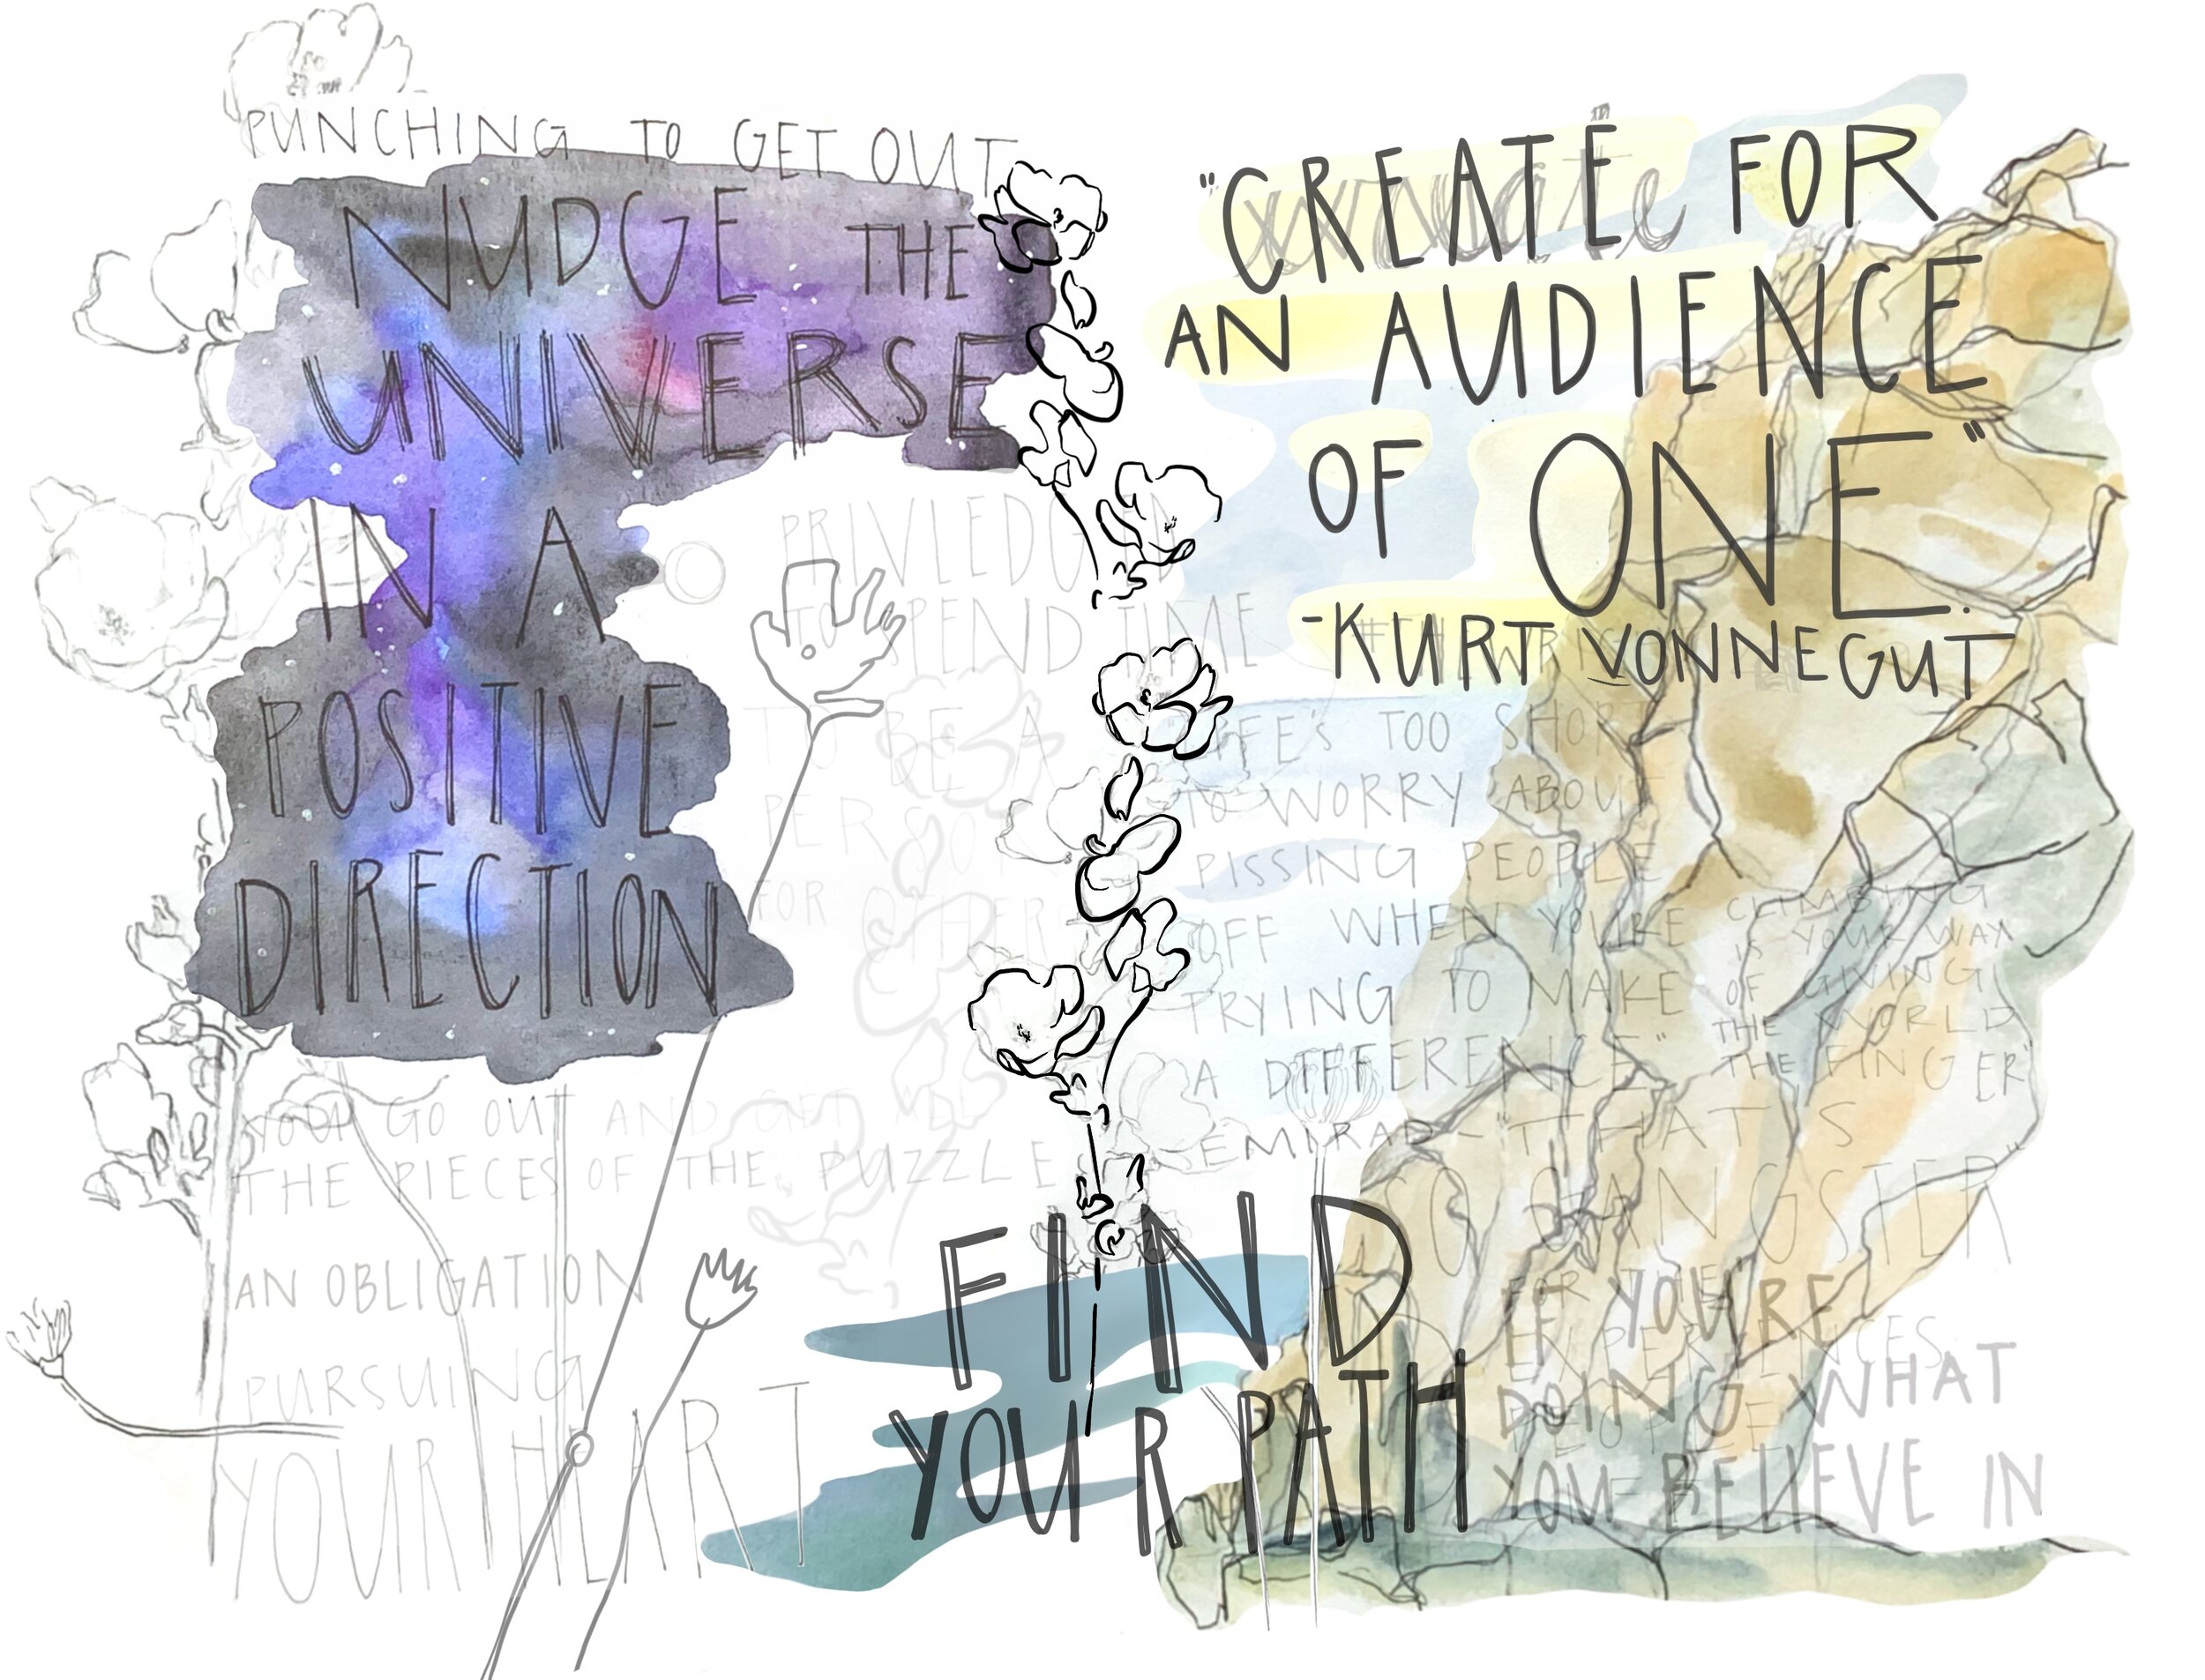 PUNCHING TO GET OUT
NUDGE THE
UNIVERSE
IN A
POSITIVE
DIRECTION
PRIVLEDGED
TO SPEND TIME
TO BE A
PERSON
FOR OTHERS
YOU GO OUT AND GET ALL
THE PIECES OF THE PUZZLE
AN OBLIGATION
PURSUING
YOUR HEART
"CREATE FOR
AN AUDIENCE
OF ONE".
-KURT VONNEGUT
LIFE'S TOO SHORT
TO WORRY ABOUT
PISSING PEOPLE
OFF WHEN YOU'RE
TRYING TO MAKE
A DIFFERENCE"
CLIMBING
IS YOUR WAY
OF GIVING
THE WORLD
THE FINGER"
"THAT'S
SO GANGSTER"
FIND
YOUR PATH
IF YOU'RE
DOING WHAT
YOU BELIEVE IN
FOR THE
EXPERIENCES
PEOPLE